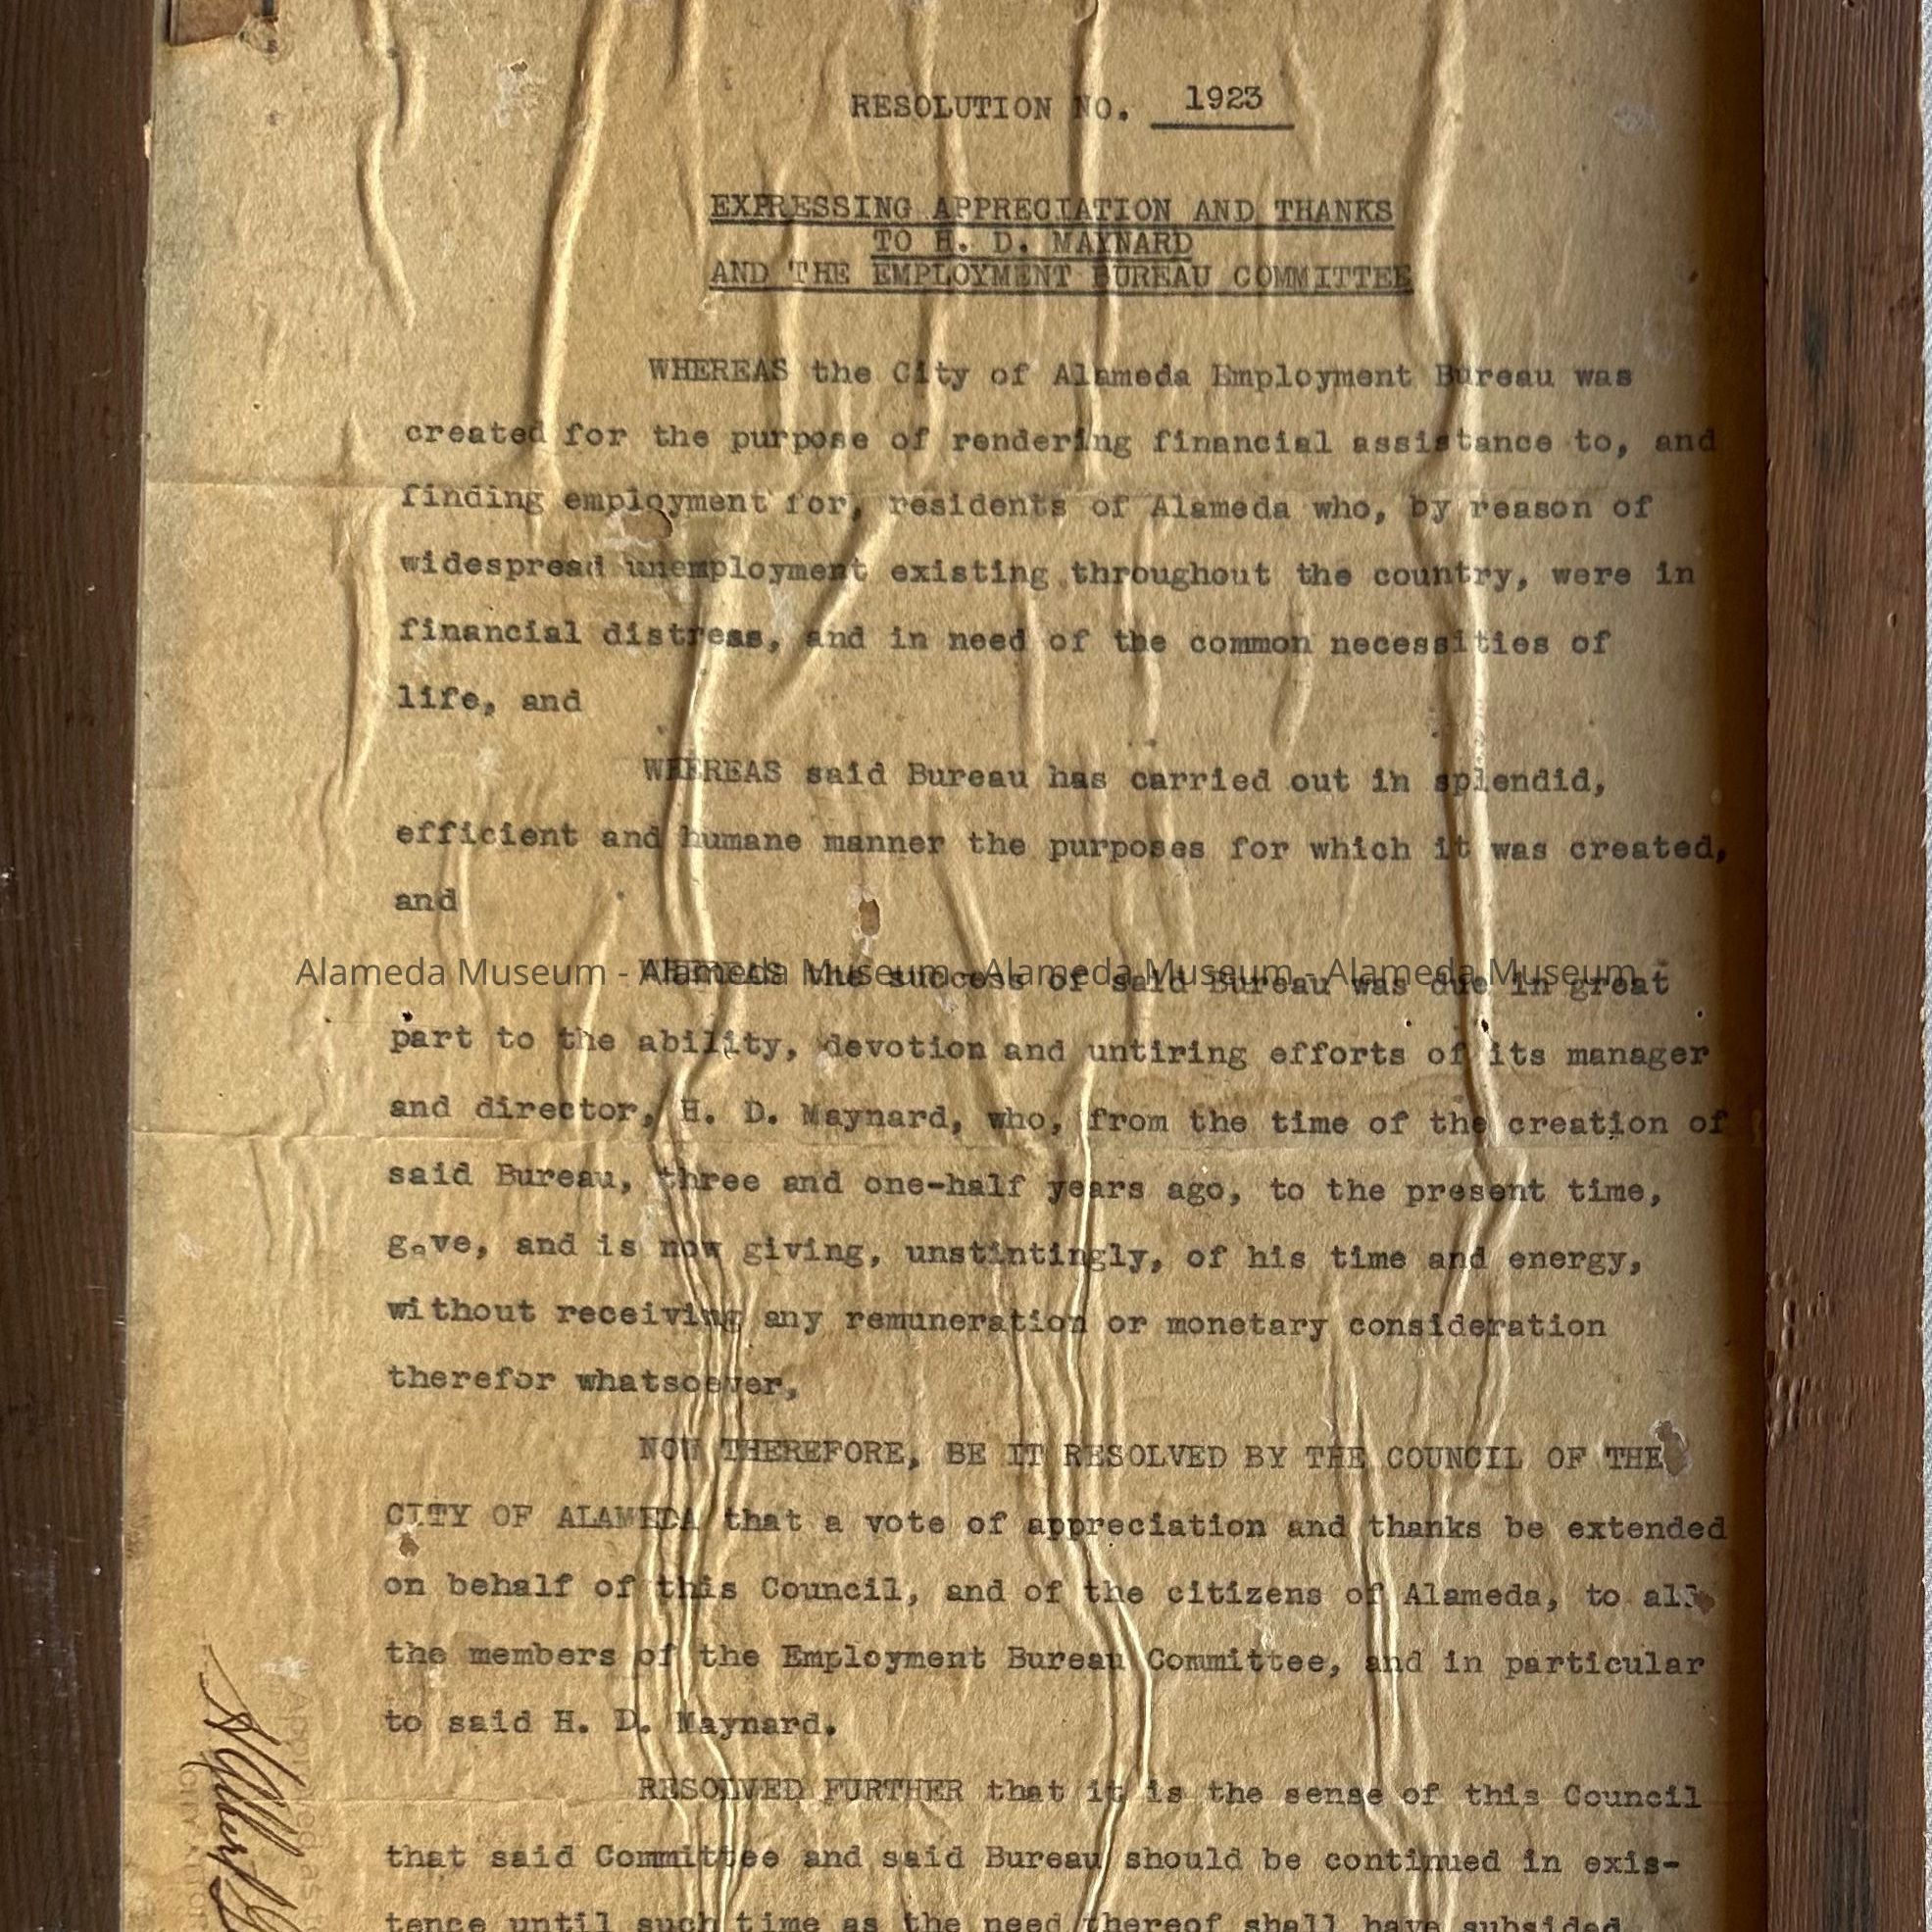 RESOLUTION NO. 1923
EXPRESSING APPRECIATION AND THANKS
TO H. D. MAYNARD
AND THE EMPLOYMENT BUREAU COMMITTEE
WHEREAS the City of Alameda Employment Bureau was
created for the purpose of rendering financial assistance to, and
finding employment for, residents of Alameda who, by reason of
widespread unemployment existing throughout the country, were in
financial distress, and in need of the common necessities of
life, and
WHEREAS said Bureau has carried out in splendid,
efficient and humane manner the purposes for which it was created,
and
Alameda Museum - Alameda Museum - Alameda Museum - Alameda Museum
WHEREAS the success of said Bureau was due in great
part to the ability, devotion and untiring efforts of its manager
and director, H. D. Maynard, who, from the time of the creation of
said Bureau, three and one-half years ago, to the present time,
gave, and is now giving, unstintingly, of his time and energy,
without receiving any remuneration or monetary consideration
therefor whatsoever,
NOW THEREFORE, BE IT RESOLVED BY THE COUNCIL OF THE
CITY OF ALAMEDA that a vote of appreciation and thanks be extended
on behalf of this Council, and of the citizens of Alameda, to all
the members of the Employment Bureau Committee, and in particular
to said H. D. Maynard.
RESOLVED FURTHER that it is the sense of this Council
that said Committee and said Bureau should be continued in exis-
tence until such time as the need thereof shall have subsided